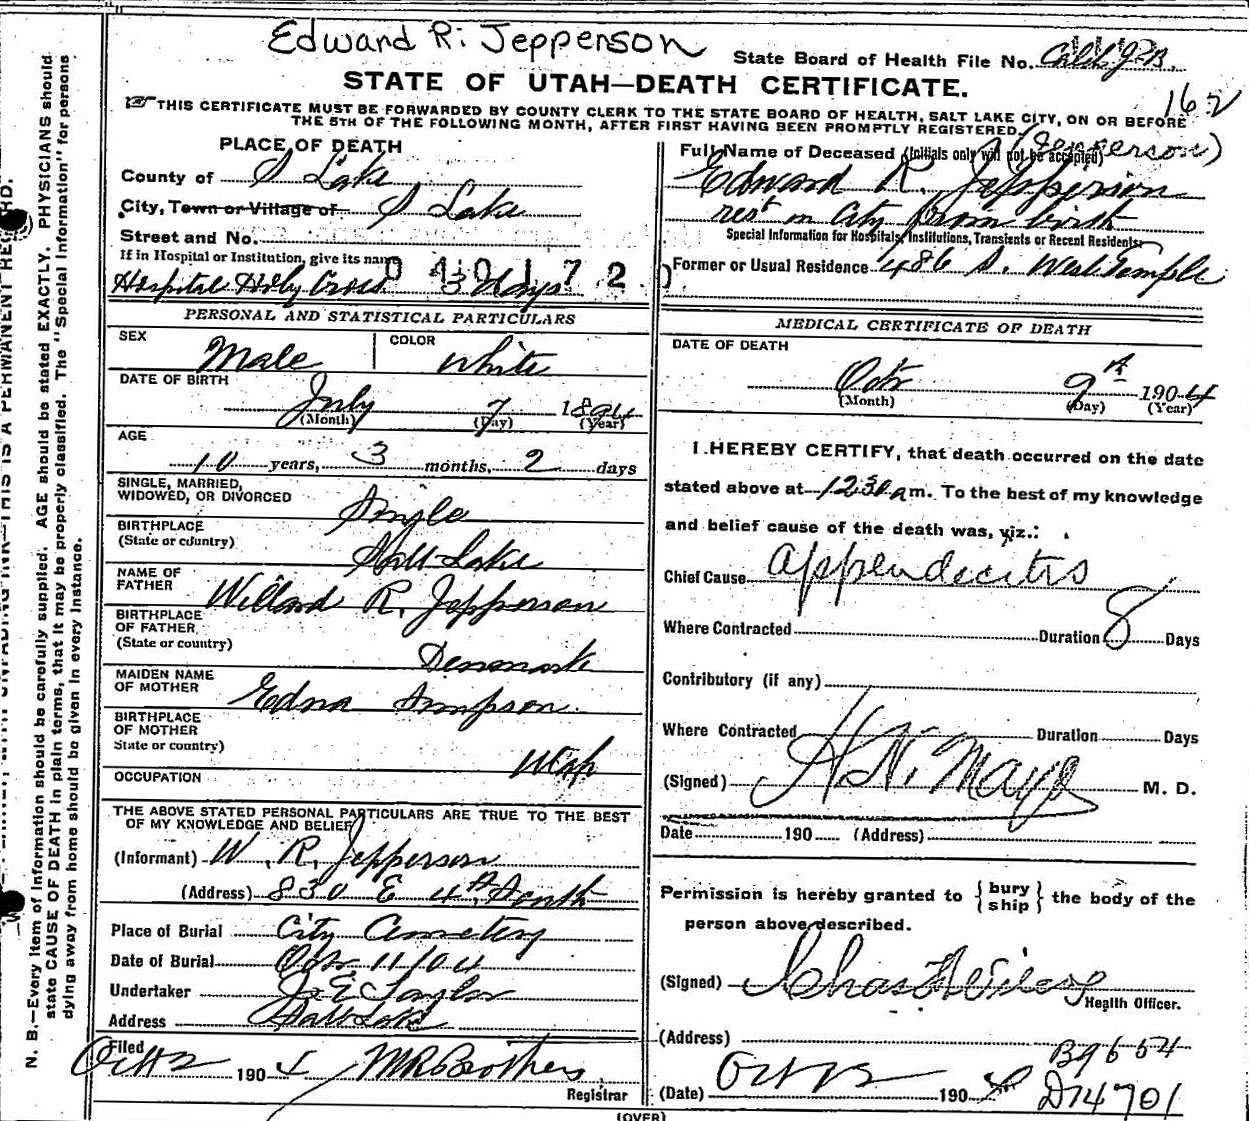 Edward R. Jepperson
State Board of Health File No.
STATE OF UTAH—DEATH CERTIFICATE.
162
THIS CERTIFICATE MUST BE FORWARDED BY COUNTY CLERK TO THE STATE BOARD OF HEALTH, SALT LAKE CITY, ON OR BEFORE
THE 5TH OF THE FOLLOWING MONTH, AFTER FIRST HAVING BEEN PROMPTLY REGISTERED.
PLACE OF DEATH
County of S Lake
City, Town or Village of S Lake
Street and No.
If in Hospital or Institution, give its name
Hospital Holy Cross 3 days
0 4 0 1 7 2
(Jepperson)
Full Name of Deceased (Initials only will not be accepted)
Edward R. Jepperson
rest in City from birth
Special Information for Hospitals, Institutions, Transients or Recent Residents:
Former or Usual Residence 486 S. West Temple
PERSONAL AND STATISTICAL PARTICULARS
SEX Male COLOR White
DATE OF BIRTH
July 7 1894
(Month) (Day) (Year)
AGE
10 years, 3 months, 2 days
SINGLE, MARRIED,
WIDOWED, OR DIVORCED Single
BIRTHPLACE
(State or country) Salt Lake
NAME OF
FATHER Willard R. Jepperson
BIRTHPLACE
OF FATHER
(State or country) Denmark
MAIDEN NAME
OF MOTHER Edna Simpson
BIRTHPLACE
OF MOTHER
State or country) Utah
OCCUPATION
THE ABOVE STATED PERSONAL PARTICULARS ARE TRUE TO THE BEST
OF MY KNOWLEDGE AND BELIEF
(Informant) W. R. Jepperson
(Address) 830 E 4th South
Place of Burial City Cemetery
Date of Burial Oct 11/04
Undertaker Jos E Taylor
Address Salt Lake
Filed
Oct 12 1904 M R Brothers
Registrar
MEDICAL CERTIFICATE OF DEATH
DATE OF DEATH
Oct 9th 1904
(Month) (Day) (Year)
I HEREBY CERTIFY, that death occurred on the date
stated above at 12 30 a m. To the best of my knowledge
and belief cause of the death was, viz.:
Chief Cause appendecitis
Where Contracted Duration 8 Days
Contributory (if any)
Where Contracted Duration Days
(Signed) H. N. Mayo M. D.
Date 190 (Address)
Permission is hereby granted to { bury ship } the body of the
person above described.
(Signed) Health Officer.
(Address) B9654
(Date) Oct 12 1904 D14701
(OVER)
N. B.—Every item of information should be carefully supplied. AGE should be stated EXACTLY. PHYSICIANS should
state CAUSE OF DEATH in plain terms, that it may be properly classified. The "Special Information" for persons
dying away from home should be given in every instance.
THIS IS A PERMANENT RECORD.